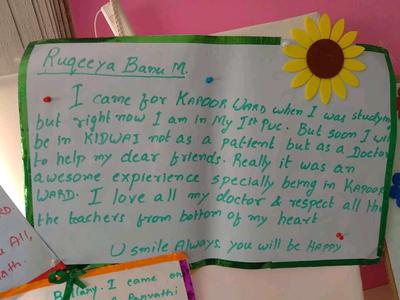 Ruqeeya Banu M.
I came for KAPOOR WARD when I was studying
but right now I am in My Ist PUC. But soon I will
be in KIDWAI not as a patient but as a Doctor
to help my dear friends. Really it was an
awesome expierience specially being in KAPOOR
WARD. I love all my doctor & respect all the
the teachers from bottom of my heart
U smile Always you will be HAPPY
ARD
u All,
ath.
Bellary. I came on
Parvathi